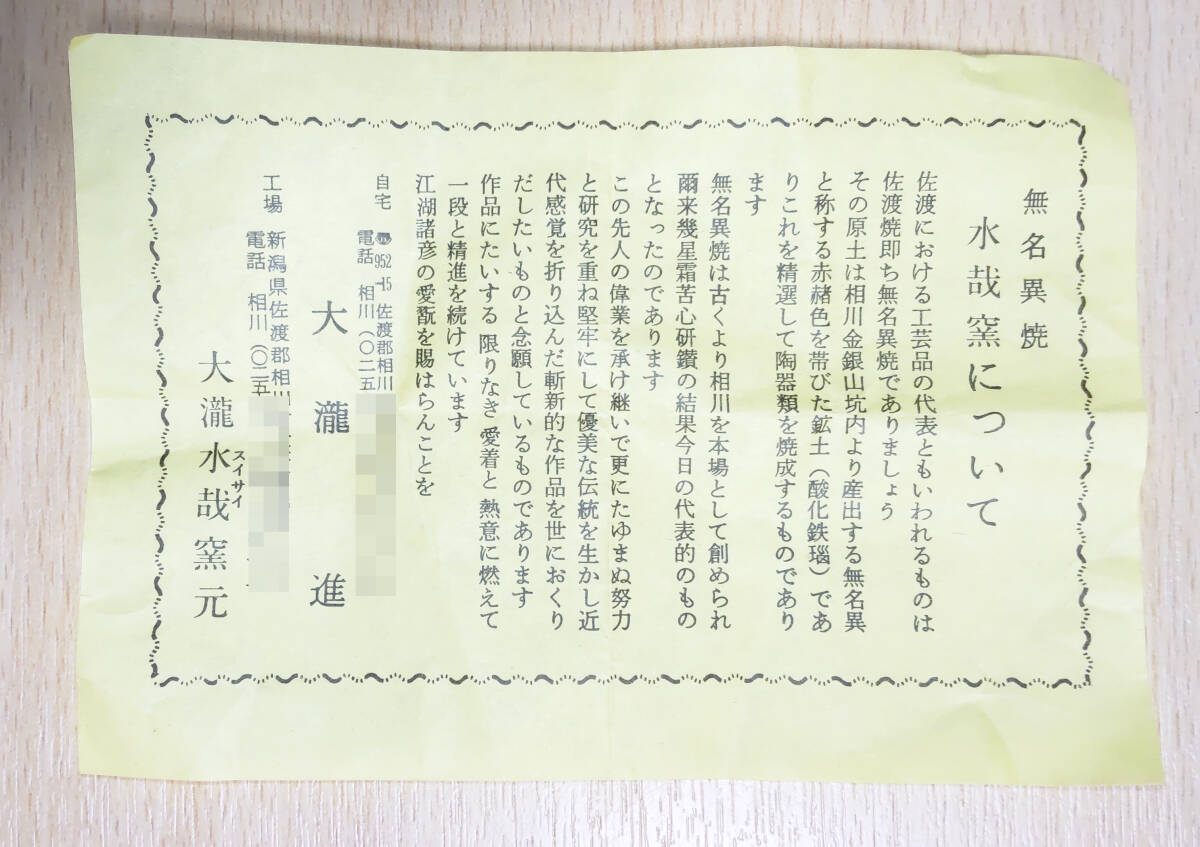 無名異焼
水哉窯について
佐渡における工芸品の代表ともいわれるものは
佐渡焼即ち無名異焼でありましょう
その原土は相川金銀山坑内より産出する無名異
と称する赤赭色を帯びた鉱土(酸化鉄瑙)であ
りこれを精選して陶器類を焼成するものであり
ます
無名異焼は古くより相川を本場として創められ
爾来幾星霜苦心研鑽の結果今日の代表的のもの
となったのであります
この先人の偉業を承け継いで更にたゆまぬ努力
と研究を重ね堅牢にして優美な伝統を生かし近
代感覚を折り込んだ斬新的な作品を世におくり
だしたいものと念願しているものであります
作品にたいする 限りなき 愛着と 熱意に燃えて
一段と精進を続けています
江湖諸彦の愛翫を賜はらんことを
自宅 952-15 佐渡郡相川
電話 相川(〇二五
大瀧 進
工場 新潟県佐渡郡相川
電話 相川(〇二五
大瀧水哉窯元
スイサイ